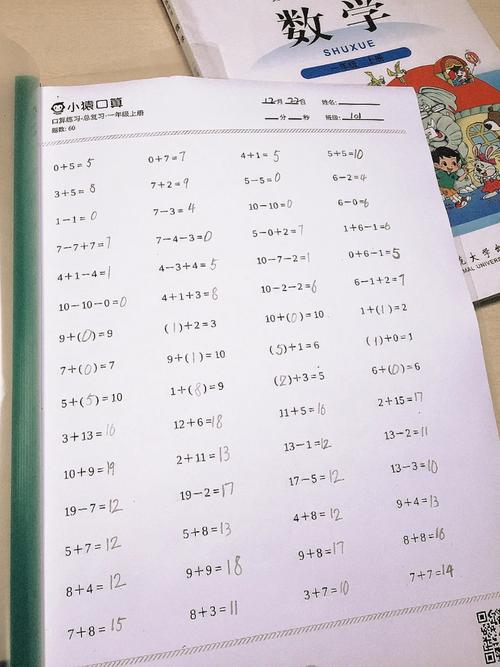 数学
SHUXUE
小猿口算
12月23日 姓名:
口算练习-总复习-一年级上册
分 秒 班级: 101
题数: 60
0+5=5 0+7=7 4+1=5 5+5=10
3+5=8 7+2=9 5-5=0 6-2=4
1-1=0 7-3=4 10-10=0 6-0=6
7-7+7=7 7-4-3=0 5-0+2=7 1+6-1=6
4+1-4=1 4-3+4=5 10-7-2=1 0+6-1=5
10-10-0=0 4+1+3=8 10-2-2=6 6-1+2=7
9+(0)=9 (1)+2=3 10+(0)=10 1+(1)=2
7+(0)=7 9+(1)=10 (5)+1=6 (1)+0=1
5+(5)=10 1+(8)=9 (2)+3=5 6+(0)=6
3+13=16 12+6=18 11+5=16 2+15=17
10+9=19 2+11=13 13-1=12 13-2=11
19-7=12 19-2=17 17-5=12 13-3=10
5+7=12 5+8=13 4+8=12 9+4=13
8+4=12 9+9=18 9+8=17 8+8=16
7+8=15 8+3=11 3+7=10 7+7=14